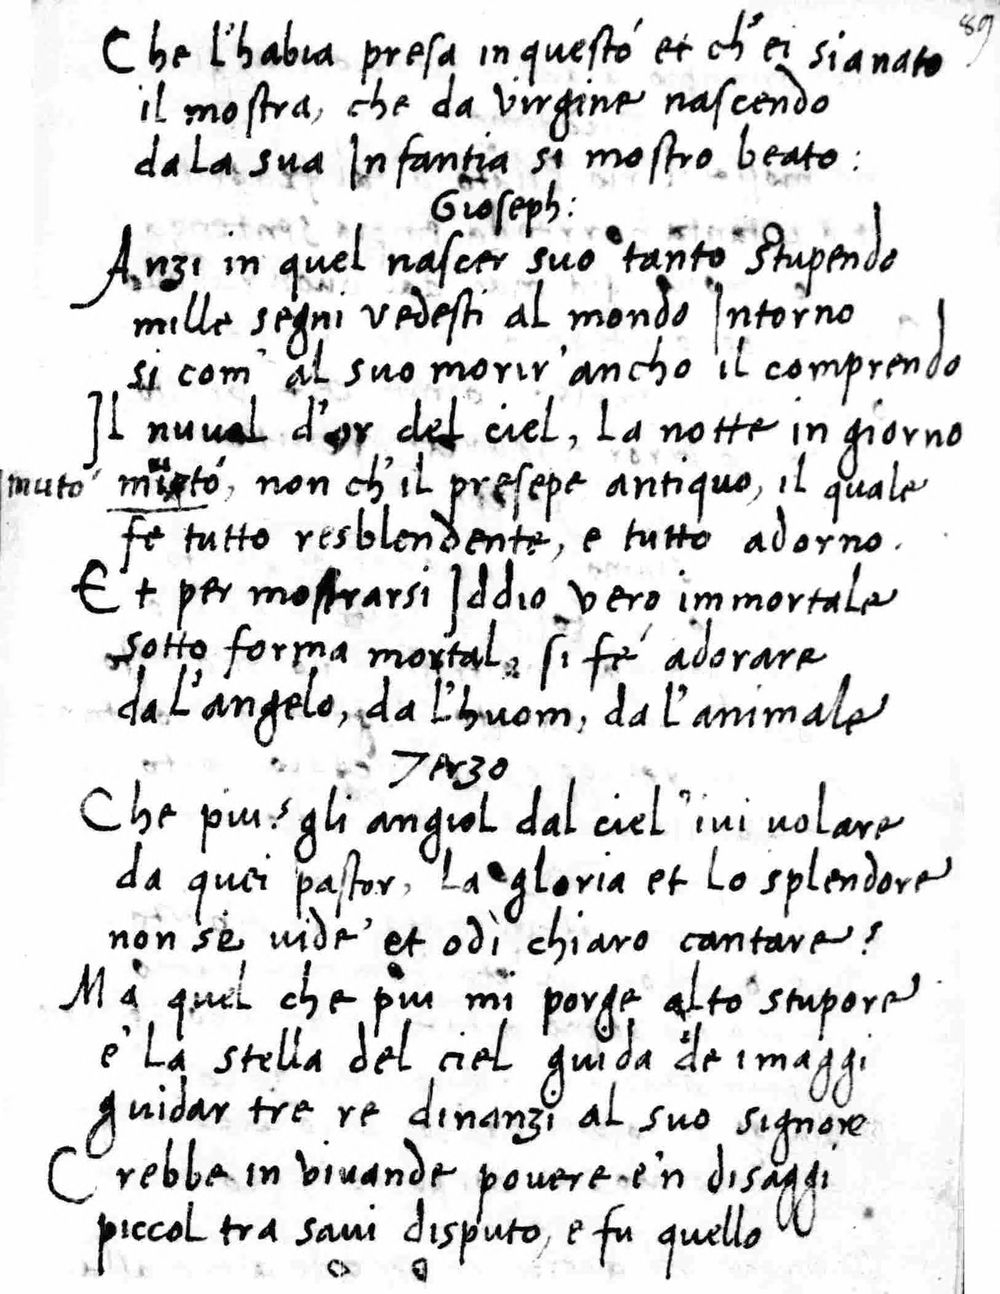 89
Che l'habia presa in questo et ch'ei sia nato
il mostra, che da virgine nascendo
da la sua Infantia si mostro beato:
Gioseph:
Anzi in quel nascer suo tanto stupendo
mille segni vedesti al mondo Intorno
si com' al suo morir' ancho il comprendo
Il nuuol d'or del ciel, la notte in giorno
muto mutó, non ch'il presepe antiquo, il quale
fe tutto resblendente, e tutto adorno.
Et per mostrarsi Iddio vero immortale
sotto forma mortal, si fé adorare
da l'angelo, da l'huom, da l'animale
Terzo
Che piu? gli angiol dal ciel ivi uolare
da quei pastor, la gloria et lo splendore
non se uide' et odì chiaro cantare?
Ma quel che piu mi porge alto stupore
e' la stella del ciel guida de i maggi
guidar tre re dinanzi al suo signore
Crebbe in viuande pouere e'n disaggi
piccol tra saui disputo, e fu quello